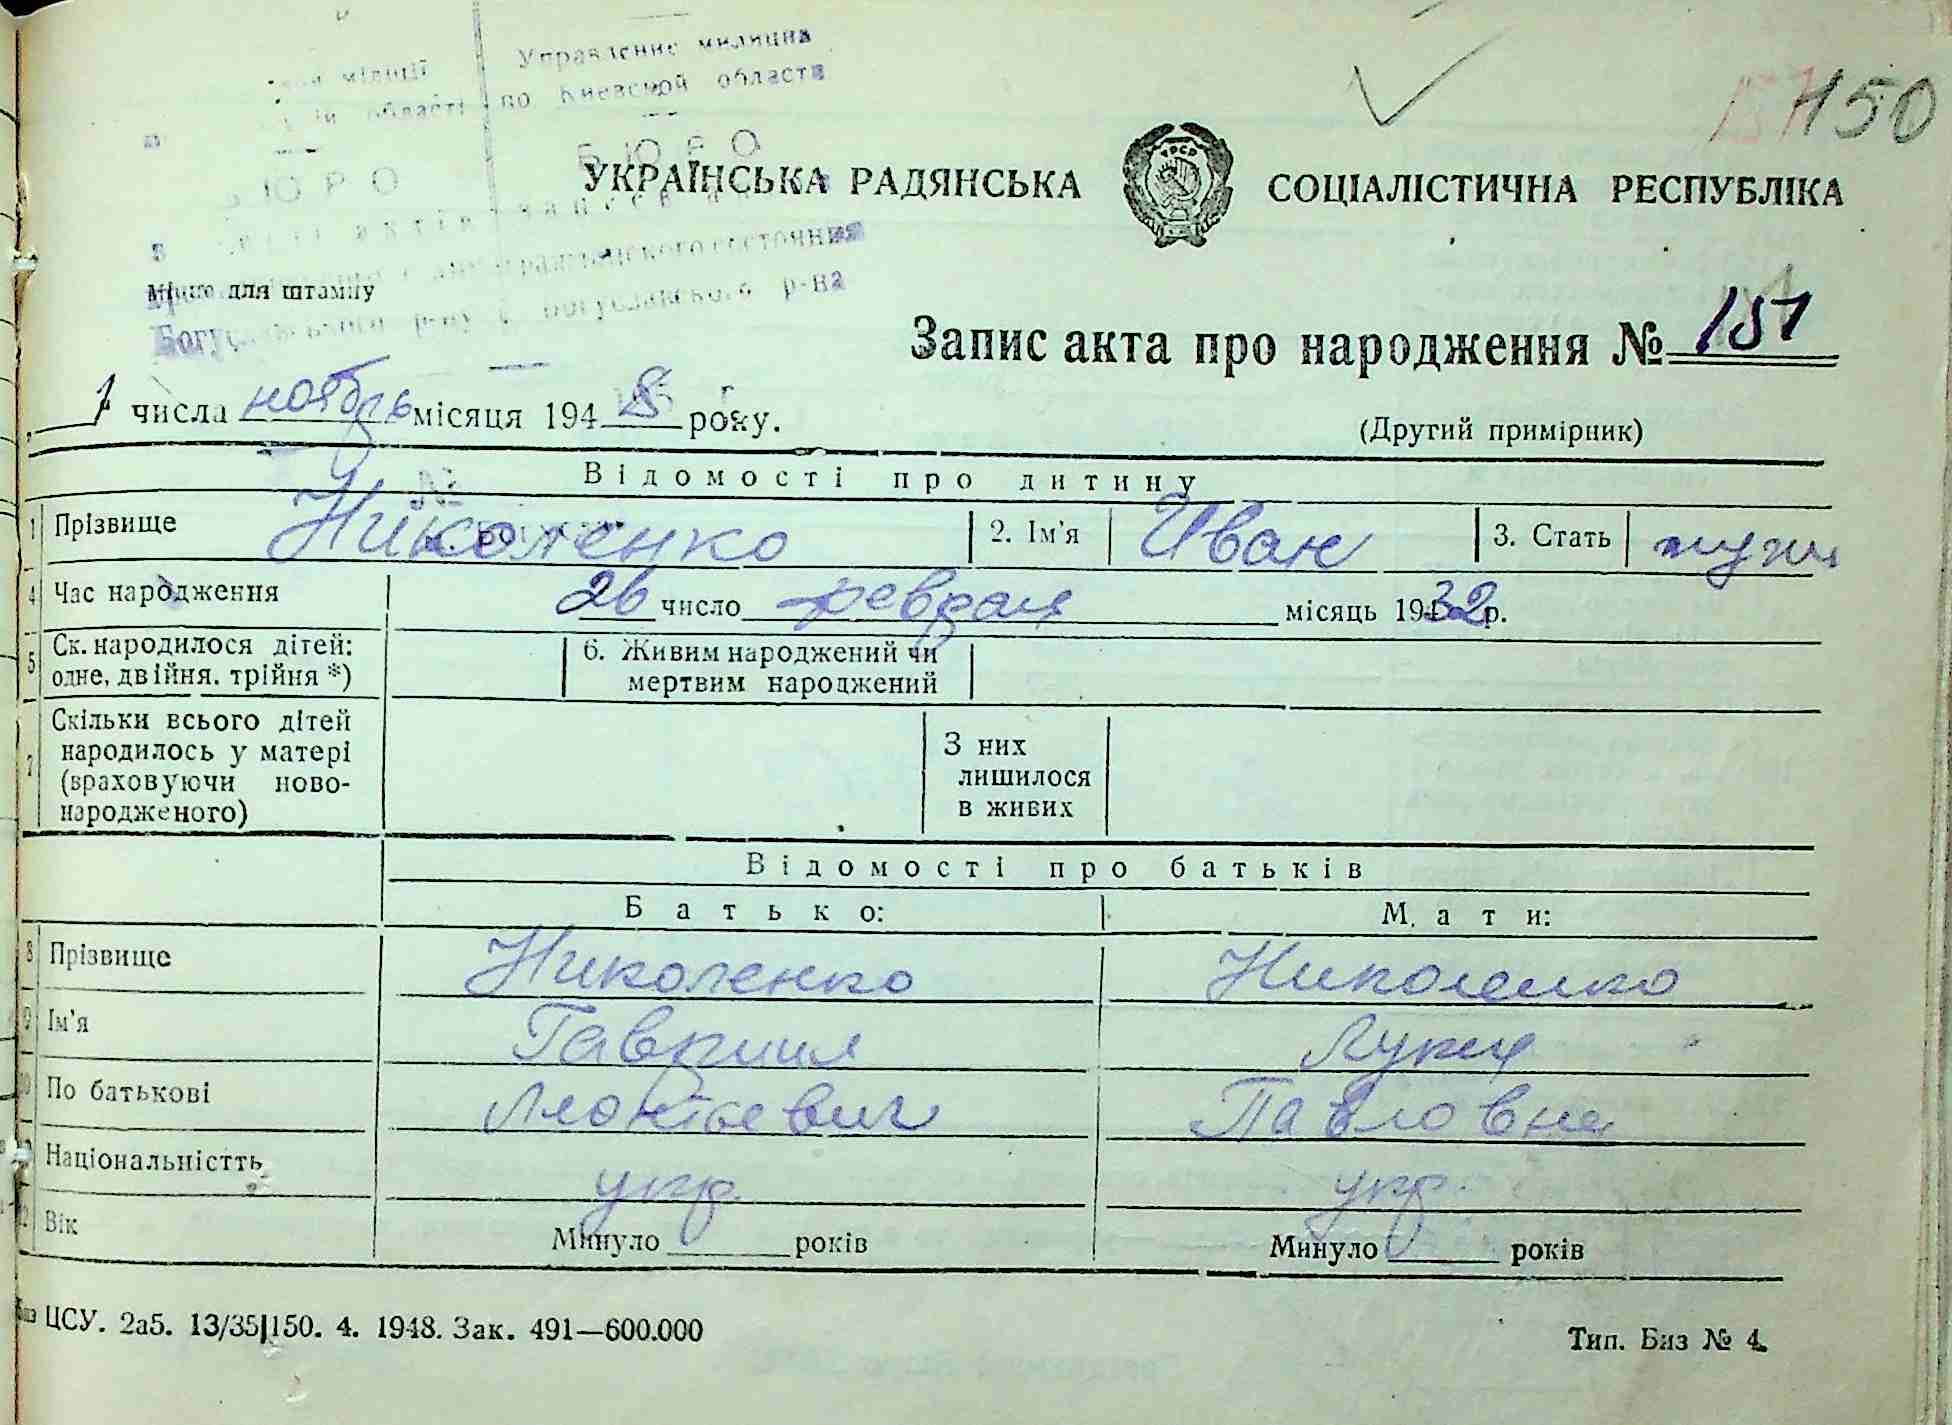 міліції Управление милиции
області по Киевской области
БЮРО БЮРО
150
УКРАЇНСЬКА РАДЯНСЬКА СОЦІАЛІСТИЧНА РЕСПУБЛІКА
УРСР
гражданского состояния
Місце для штампу
Богуславського р-ну Богуславского р-на
Запис акта про народження № 151
1 числа ноябрь місяця 1948 року.
(Другий примірник)
Відомості про дитину
1 Прізвище Николенко 2. Ім'я Иван 3. Стать муж
4 Час народження 26 число февраля місяць 1932 р.
5 Ск. народилося дітей: 6. Живим народжений чи
одне, двійня, трійня *) мертвим народжений
7 Скільки всього дітей
народилось у матері З них
(враховуючи ново- лишилося
народженого) в живих
Відомості про батьків
Батько: Мати:
8 Прізвище Николенко Николенко
9 Ім'я Гавриил Лукия
10 По батькові Леонтьевич Павловна
Національністть укр. укр.
12 Вік Минуло років Минуло років
ЦСУ. 2а5. 13/35|150. 4. 1948. Зак. 491—600.000
Тип. Биз № 4.